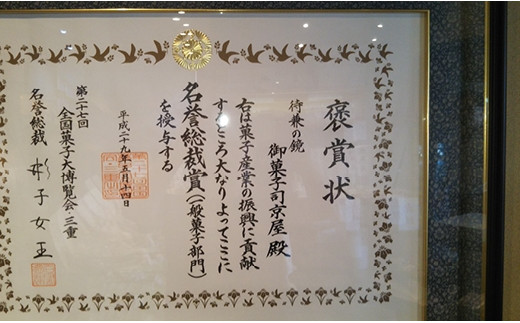 褒賞状
御菓子司京屋殿
待兼の鏡
右は菓子産業の振興に貢献
するところ大なりよってここに
名誉総裁賞(一般菓子部門)
を授与する
平成二十九年五月十四日
第二十七回
全国菓子大博覧会・三重
名誉総裁 彬子女王